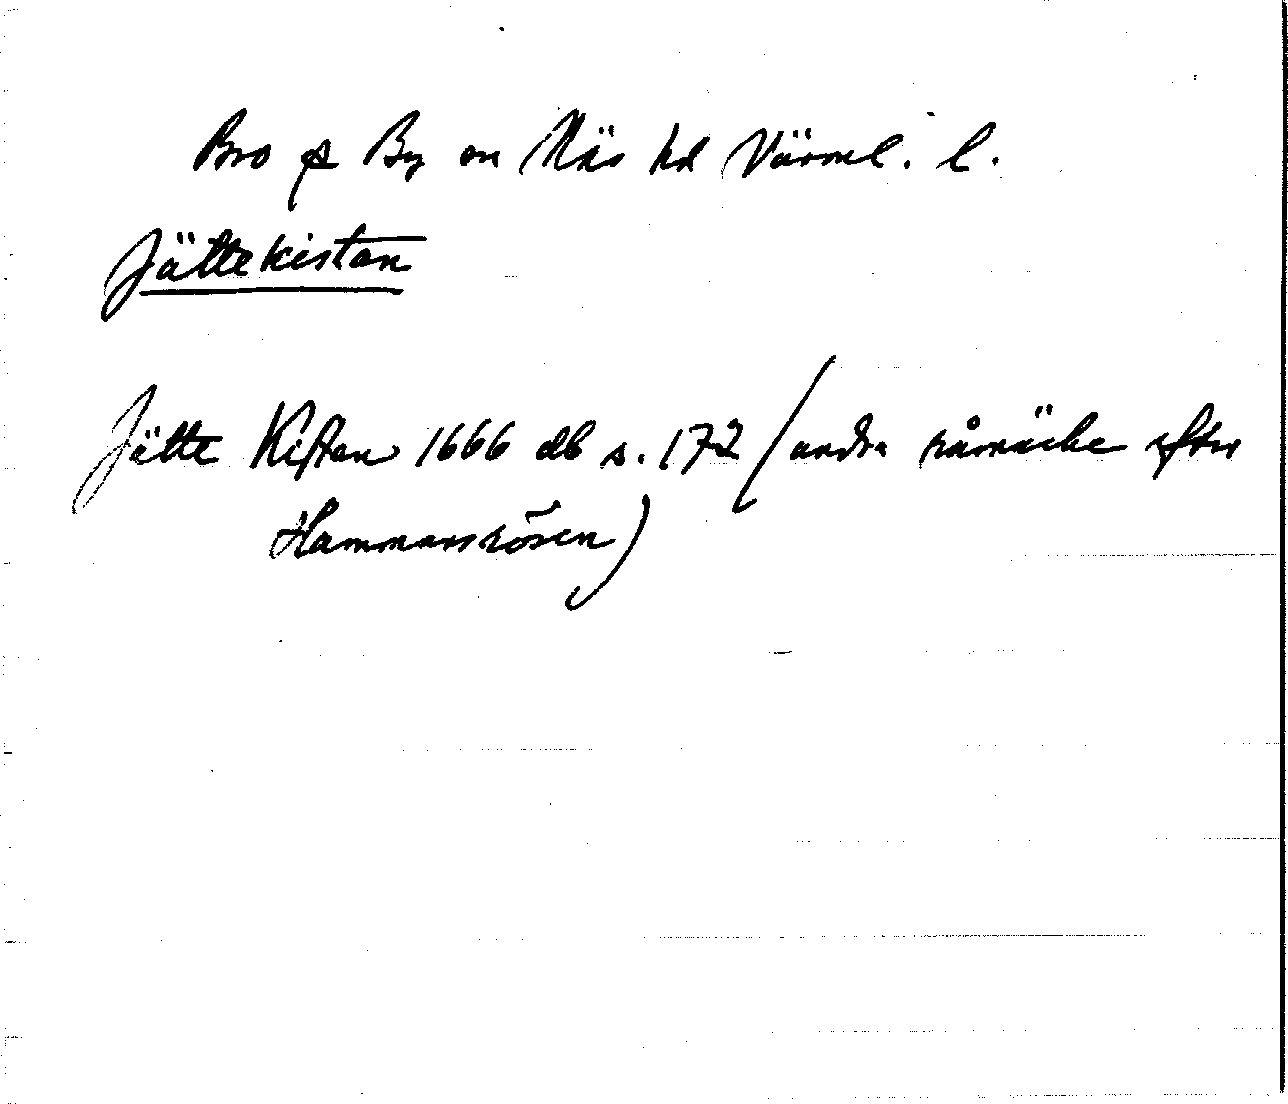 Bro o By sn Näs hd Värml. l.
Jättekistan
Jätte Kistan 1666 db s. 172 (andra råmärke efter
Hammarsrösen)